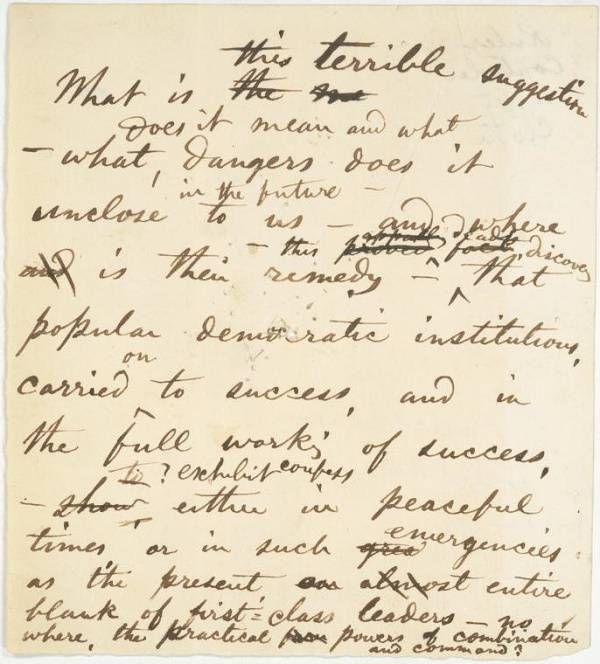 this terrible suggestion
What is the
does it mean and what
— what, dangers does it
in the future —
unclose to us — and where
— this proved fact discovery
and is their remedy — that
popular democratic institutions,
on
carried to success, and in
the full work'g of success,
to? exhibit confess
— show either in peaceful
times or in such emergencies
as the present almost entire
blank of first-class leaders — no
where, the practical powers of combination
and command?